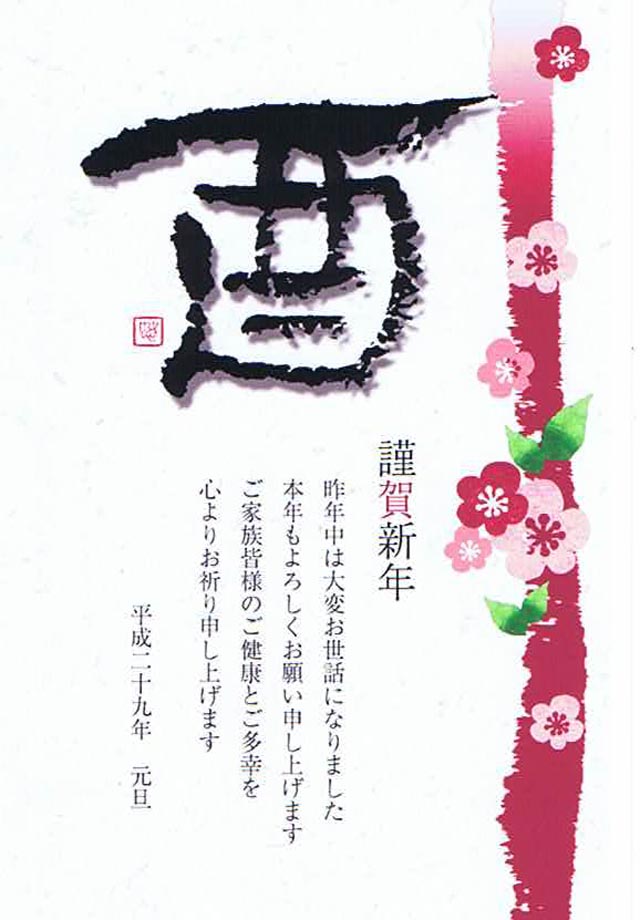 酉
謹賀新年
昨年中は大変お世話になりました
本年もよろしくお願い申し上げます
ご家族皆様のご健康とご多幸を
心よりお祈り申し上げます
平成二十九年 元旦